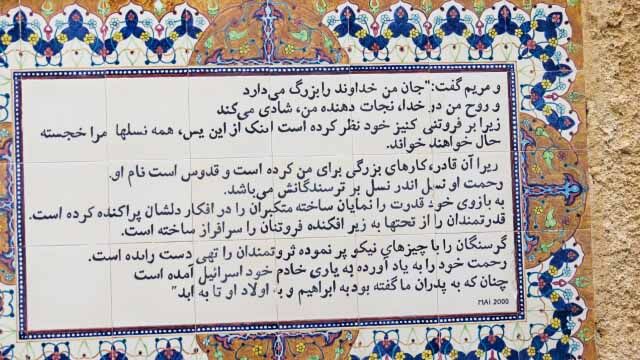 و مریم گفت:"جان من خداوند را بزرگ می‌دارد
و روح من در خدا، نجات دهنده من، شادی می‌کند
زیرا بر فروتنی کنیز خود نظر کرده است اینک از این پس، همه نسلها مرا خجسته
حال خواهند خواند.
زیرا آن قادر، کارهای بزرگی برای من کرده است و قدوس است نام او.
رحمت او نسل اندر نسل بر ترسندگانش می‌باشد.
به بازوی خود قدرت را نمایان ساخته متکبران را در افکار دلشان پراکنده کرده است.
قدرتمندان را از تختها به زیر افکنده فروتنان را سرافراز ساخته است.
گرسنگان را با چیزهای نیکو پر نموده ثروتمندان را تهی دست رانده است.
رحمت خود را به یاد آورده به یاری خادم خود اسرائیل آمده است
چنان که به پدران ما گفته بود به ابراهیم و به اولاد او تا به ابد"
MAI 2000